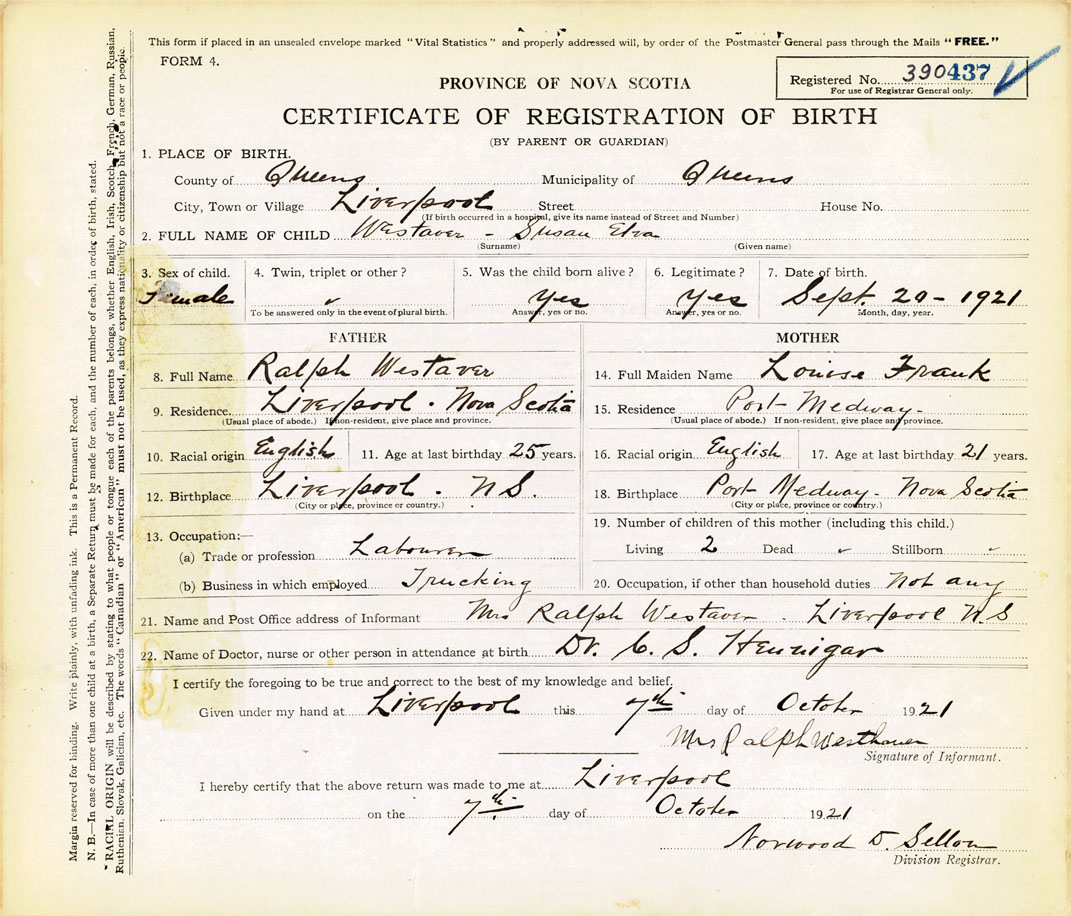 This form if placed in an unsealed envelope marked "Vital Statistics" and properly addressed will, by order of the Postmaster General pass through the Mails "FREE."
FORM 4.
Registered No. 390437
For use of Registrar General only.
PROVINCE OF NOVA SCOTIA
CERTIFICATE OF REGISTRATION OF BIRTH
(BY PARENT OR GUARDIAN)
1. PLACE OF BIRTH.
County of Queens Municipality of Queens
City, Town or Village Liverpool Street House No.
(If birth occurred in a hospital, give its name instead of Street and Number)
2. FULL NAME OF CHILD Westaver - Susan Elva
(Surname) (Given name)
3. Sex of child. 4. Twin, triplet or other? 5. Was the child born alive? 6. Legitimate? 7. Date of birth.
Female " Yes Yes Sept. 20 - 1921
To be answered only in the event of plural birth. Answer, yes or no. Answer, yes or no. Month, day, year.
FATHER MOTHER
8. Full Name Ralph Westaver 14. Full Maiden Name Louise Frank
9. Residence. Liverpool - Nova Scotia 15. Residence Port Medway -
(Usual place of abode.) If non-resident, give place and province. (Usual place of abode.) If non-resident, give place and province.
10. Racial origin English 11. Age at last birthday 25 years. 16. Racial origin English 17. Age at last birthday 21 years.
12. Birthplace Liverpool - N S. 18. Birthplace Port Medway - Nova Scotia
(City or place, province or country.) (City or place, province or country.)
13. Occupation:— 19. Number of children of this mother (including this child.)
(a) Trade or profession Labourer Living 2 Dead " Stillborn "
(b) Business in which employed Trucking 20. Occupation, if other than household duties Not any
21. Name and Post Office address of Informant Mrs Ralph Westaver . Liverpool N.S
22. Name of Doctor, nurse or other person in attendance at birth Dr. C. S. Hennigar
I certify the foregoing to be true and correct to the best of my knowledge and belief.
Given under my hand at Liverpool this 7th day of October 1921
Mrs Ralph Westhaver
Signature of Informant.
I hereby certify that the above return was made to me at Liverpool
on the 7th. day of October 1921
Norwood D. Sellon
Division Registrar.
Margin reserved for binding. Write plainly, with unfading ink. This is a Permanent Record.
N. B.—In case of more than one child at a birth, a Separate Return must be made for each, and the number of each, in order of birth, stated.
"RACIAL ORIGIN will be described by stating to what people or tongue each of the parents belongs, whether English, Irish, Scotch, French, German, Russian,
Ruthenian, Slovak, Galician, etc. The words "Canadian" or "American" must not be used, as they express nationality or citizenship but not a race or people.